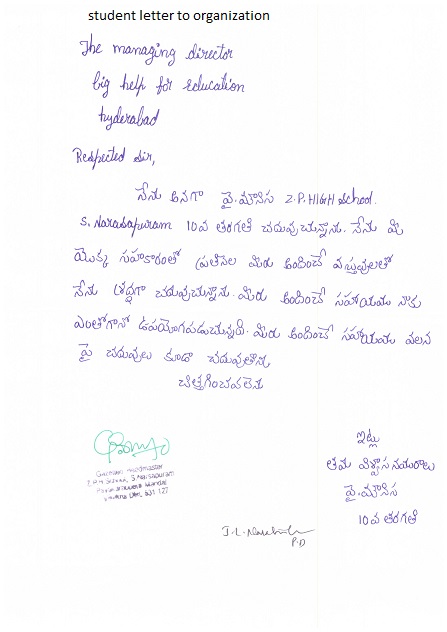 student letter to organization
The managing director
big help for education
hyderabad
Respected sir,
నేను అనగా వై.మానస Z.P.HIGH School.
S. Narasapuram 10వ తరగతి చదువుచున్నాను. నేను మీ
యొక్క సహకారంతో ప్రతినెల మీరు అందించే వస్తువులతో
నేను శ్రద్ధగా చదువుచున్నాను. మీరు అందించే సహాయము నాకు
ఎంతోగానో ఉపయోగపడుచున్నది. మీరు అందించే సహాయము వలన
పై చదువులు కూడా చదువుతాను
చిత్తగించవలెను
ఇట్లు
తమ విశ్వాసనీయురాలు
వై.మానస
10వ తరగతి
S.Narsapuram
Mandal
531 127
P.D